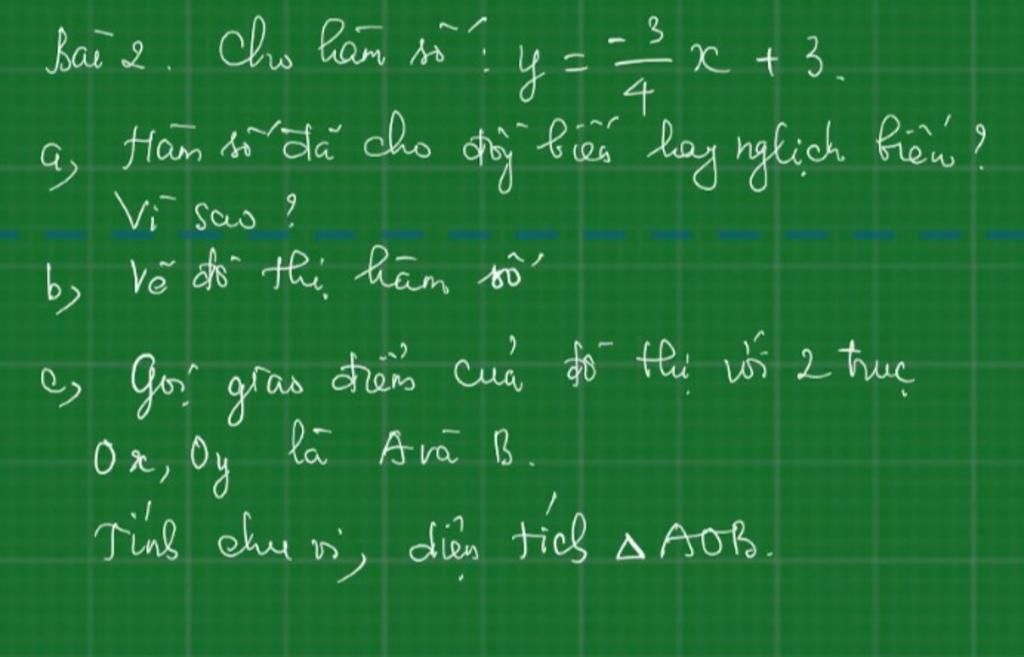 Bài 2. Cho hàm số: y = -3/4 x + 3.
a, Hàm số đã cho đồng biến hay nghịch biến?
Vì sao?
b, Vẽ đồ thị hàm số
c, Gọi giao điểm của đồ thị với 2 trục
Ox, Oy là A và B.
Tính chu vi, diện tích Δ AOB.